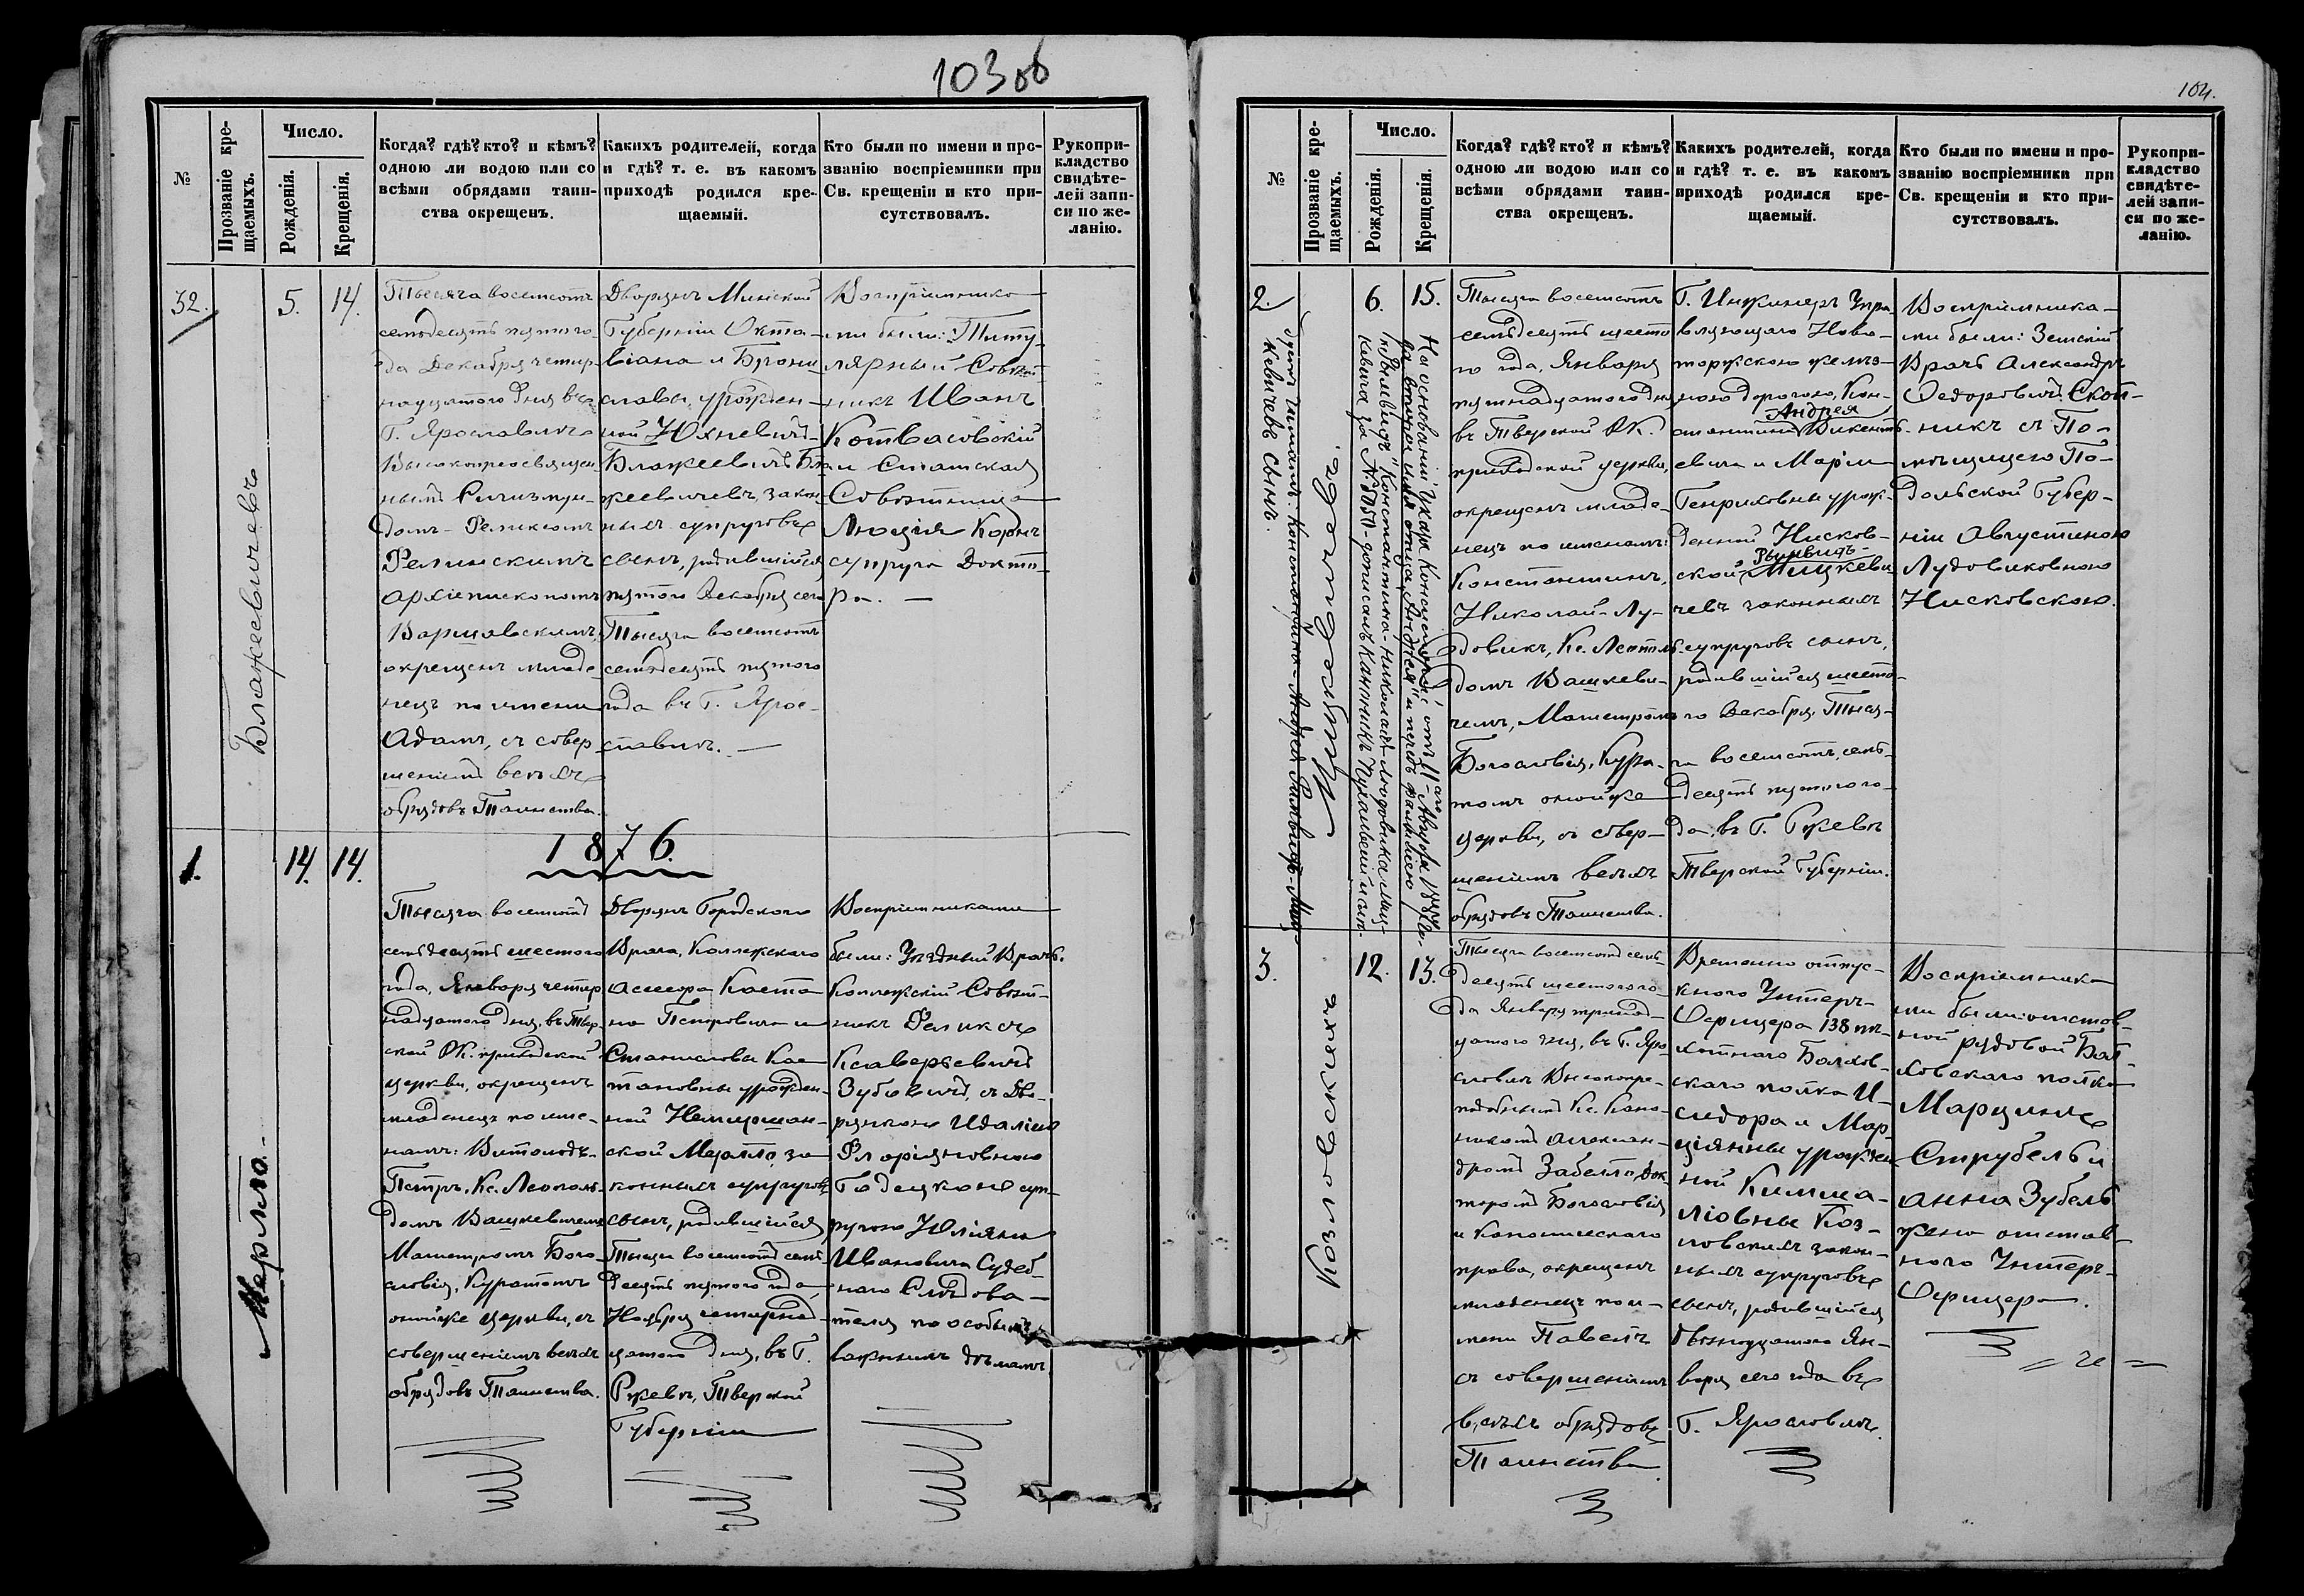 103 об
№
Прозваніе кре-
щаемыхъ.
Число.
Рожденія.
Крещенія.
Когда? гдѣ? кто? и кѣмъ?
одною ли водою или со
всѣми обрядами таин-
ства окрещенъ.
Какихъ родителей, когда
и гдѣ? т. е. въ какомъ
приходѣ родился кре-
щаемый.
Кто были по имени и про-
званію воспріемники при
Св. крещеніи и кто при-
сутствовалъ.
Рукопри-
кладство
свидѣте-
лей запи-
си по же-
ланію.
32.
Блажеевичевъ
5.
14.
Тысяча восемсотъ
семьдесятъ пятого
да Декабря четыр
надцатого дня въ
Г. Ярославлѣ
Высокопреосвящен
нымъ Сигизмун-
домъ-Феликсомъ
Фелинскимъ
Архіепископомъ
Варшавскимъ,
окрещенъ младе
нецъ по имени
Адамъ, съ совер
шеніемъ всѣхъ
обрядовъ Таинства.
Дворянъ Минской
Губерніи Окта-
віана и Брони
славы, урожден-
ной Юхневичъ-
Блажеевичъ Бла
жеевичевъ, закон
ныхъ супруговъ
сынъ, родившійся
пятого Декабря сего
Тысяча восемсотъ
семьдесятъ пятого
года въ Г. Яро-
славлѣ. —
Воспріемника
ми были: Титу-
лярный Совѣт-
никъ Иванъ
Котвасовскій
и Статская
Совѣтница
Люція Коронъ
супруга Докто-
ра. —
1876.
1.
Мерлло.
14.
14.
Тысяча восемсотъ
семьдесятъ шестого
года, Января четыр
надцатого дня, въ Твер-
ской РК. приходской
церкви, окрещенъ
младенецъ по име-
намъ: Витольдъ-
Петръ, Кс. Леополь-
домъ Вашкевичемъ
Магистромъ Бого
словія, Куратомъ
онойже церкви, съ
совершеніемъ всѣхъ
обрядовъ Таинства.
Дворянъ Городского
Врача, Коллежскаго
Ассесора Каэта
на Петровича и
Станиславы Кае
тановны урожден-
ной
за
конныхъ супруговъ
сынъ, родившійся
Тысяча восемсотъ семь
десятъ пятого года,
Ноября четырнад-
цатого дня, въ Г.
Ржевѣ, Тверской
Губерніи
Воспріемниками
были: Уѣздный Врачъ.
Коллежскій Совѣт-
никъ Феликсъ
Ксаверьевичъ
Зубовичъ, съ Дво-
рянкою Идаліею
Флоріановною
Годецкою суп-
ругою Юліяна
Ивановича Судеб-
наго Слѣдова-
теля по особымъ
важнымъ дѣламъ
104.
№
Прозваніе кре-
щаемыхъ.
Число.
Рожденія.
Крещенія.
Когда? гдѣ? кто? и кѣмъ?
одною ли водою или со
всѣми обрядами таин-
ства окрещенъ.
Какихъ родителей, когда
и гдѣ? т. е. въ какомъ
приходѣ родился кре-
щаемый.
Кто были по имени и про-
званію воспріемники при
Св. крещеніи и кто при-
сутствовалъ.
Рукопри-
кладство
свидѣте-
лей запи-
си по же-
ланію.
2.
Мицкевичевъ.
6.
15.
На основаніи Указа Консисторіи отъ 11-аго Августа
за
второе имя отца „Андрея" и передъ фамиліею
„Рымвидъ" Константина-Николая-Людовика Миц-
кевича за № дописалъ Каноникъ
Константина-Андрея Рымвидъ-Миц-
кевичевъ сынъ.
Тысяча восемсотъ
семьдесятъ шесто
го года, Января
пятнадцатого дня
въ Тверской РК.
приходской церкви,
окрещенъ младе-
нецъ по именамъ:
Константинъ,
Николай-Лу-
довикъ, Кс. Леополь-
домъ Вашкеви-
чемъ, Магистромъ
Богословія, Кура-
томъ онойже
церкви, съ совер-
шеніемъ всѣхъ
обрядовъ Таинства.
Г. Инжинера Упра
вляющаго Ново-
торжскою желѣз-
ною дорогою, Кон-
Андрея
стантина Викенть-
евича и Маріи
Генриховны урож-
денной Нисков-
Рымвидъ-
ской Мицкеви
чевъ законныхъ
супруговъ сынъ,
родившійся шесто-
го Декабря, Тыся-
ча восемсотъ, семь-
десятъ пятого го-
да, въ Г. Ржевѣ
Тверской Губерніи.
Воспріемника-
ми были: Земскій
Врачъ Александръ
Федоровичъ Скоп-
никъ съ По-
мѣщицею По-
дольской Губер-
ніи Августиною
Лудовиковною
Нисковскою.
3.
Козловскихъ
12.
13.
Тысяча восемсотъ семь-
десятъ шестого го-
да Января тринад-
цатого дня, въ Г. Яро
славлѣ Высокопре-
подобнымъ Кс. Кано-
никомъ Алексан-
дромъ Забелло, Док-
торомъ Богословія
и Каноническаго
права, окрещенъ
младенецъ по и-
мени Павелъ
съ совершеніемъ
всѣхъ обрядовъ
Таинства.
Временно отпус-
кного Унтеръ-
Офицера 138 пѣ-
хотнаго Болхов-
скаго полка И-
сидора и Мар-
ціянны урожден
ной
Коз-
ловскихъ закон-
ныхъ супруговъ
сынъ, родившійся
двѣнадцатого Ян-
варя сего года въ
Г. Ярославлѣ.
Воспріемника
ми были: отстав-
ной рядовой Бол-
ховскаго полка
Марцинъ
Струбель и
Анна Зубель
жена отстав-
ного Унтеръ-
Офицера.